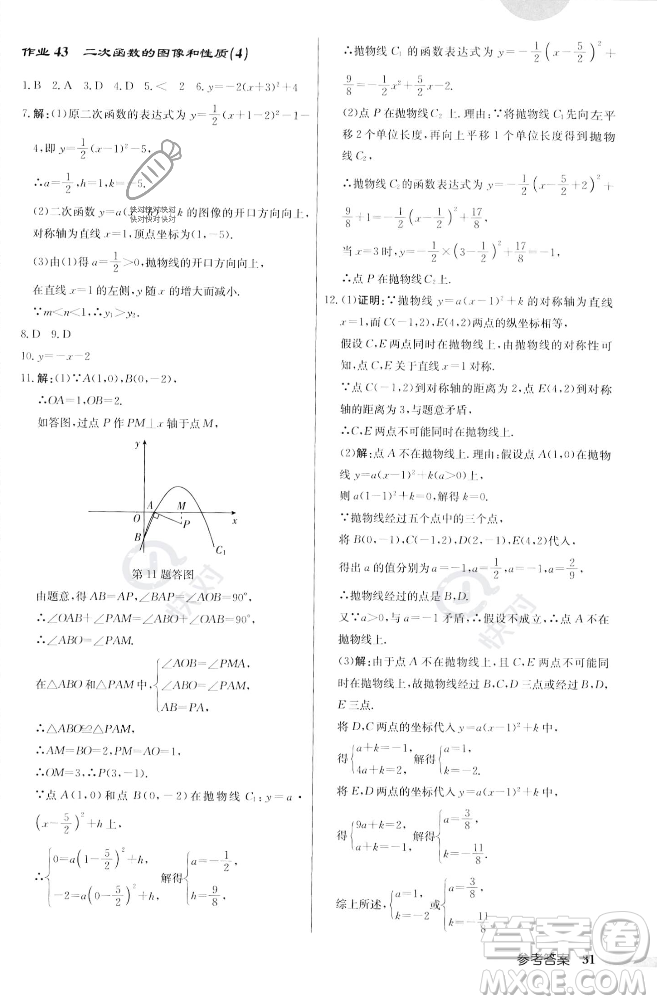 作业 43　二次函数的图像和性质(4)
1.B　2.A　3.D　4.D　5.<　2　6.y=-2(x+3)²+4
7.解:(1)原二次函数的表达式为 y=1/2(x+1-2)²-1-
4,即 y=1/2(x-1)²-5,
∴a=1/2,h=1,k=-5.
(2)二次函数 y=a(　k 的图像的开口方向向上,
对称轴为直线 x=1,顶点坐标为(1,-5).
(3)由(1)得 a=1/2>0,抛物线的开口方向向上,
在直线 x=1 的左侧,y 随 x 的增大而减小.
∵m<n<1,∴y₁>y₂.
8.D　9.D
10.y=-x-2
11.解:(1)∵A(1,0),B(0,-2),
∴OA=1,OB=2.
如答图,过点 P 作 PM⊥x 轴于点 M,
y
A
M
O
x
P
B
C₁
第 11 题答图
由题意,得 AB=AP,∠BAP=∠AOB=90°,
∴∠OAB+∠PAM=∠OAB+∠ABO=90°,
∴∠ABO=∠PAM.
在△ABO 和△PAM 中,{∠AOB=∠PMA, ∠ABO=∠PAM, AB=AP,
∴△ABO≌△PAM,
∴AM=OB=2,PM=AO=1,
∴OM=3,∴P(3,-1).
∵点 A(1,0)和点 B(0,-2)在抛物线 C₁:y=a·
(x-5/2)²+h 上,
∴{0=a(1-5/2)²+h, -2=a(0-5/2)²+h, 解得{a=-1/2, h=9/8,
∴抛物线 C₁ 的函数表达式为 y=-1/2(x-5/2)²+
9/8.
(2)点 P 在抛物线 C₂ 上.理由:∵抛物线 C₁ 向左平
移 2 个单位长度,再向上平移 1 个单位长度,得到抛物
线 C₂,
∴抛物线 C₂ 的函数表达式为 y=-1/2(x-5/2+2)²+
9/8+1=-1/2(x-1/2)²+17/8.
当 x=3 时,y=-1/2×(3-1/2)²+17/8=-1,
∴点 P 在抛物线 C₂ 上.
12.(1)证明:∵抛物线 y=a(x-1)²+k 的对称轴为直线
x=1,而 C(-1,2),E(4,2)两点的纵坐标相等,
假设 C,E 两点同时在抛物线 y=a(x-1)²+k 上,
由抛物线的对称性可知,点 C,E 关于直线 x=1 对称.
∵点 C 到对称轴的距离为 2,点 E 到对称轴的距离
为 3,与题意矛盾,
∴C,E 两点不可能同时在抛物线上.
(2)解:点 A 不在抛物线上.理由:假设点 A 在抛物
线 y=a(x-1)²+k(a>0)上,
则 a(1-1)²+k=0,解得 k=0.
∵抛物线经过五个点中的三个点,
将 B(0,-1),C(-1,2),D(2,-1),E(4,2)代入,
得出 a 的值分别为 a=-1,a=1/2,a=-1,a=2/9,
∴抛物线经过的点是 B,D.
又∵a>0,与 a=-1 矛盾,∴假设不成立,∴点 A 不
在抛物线上.
(3)解:由于点 A 不在抛物线上,C,E 两点不可能同
时在抛物线上,故抛物线经过 B,C,D 三点或 B,D,
E 三点.
将 D,C 两点的坐标代入 y=a(x-1)²+k 中,
得{a+k=-1, 4a+k=2, 解得{a=1, k=-2.
将 E,D 两点的坐标代入 y=a(x-1)²+k 中,
得{9a+k=2, a+k=-1, 解得{a=3/8, k=-11/8.
综上所述,{a=1, k=-2 或{a=3/8, k=-11/8.
参考答案　31
快对快对快对
快对快对快对
快对
快对
答案圈
MXQE.COM